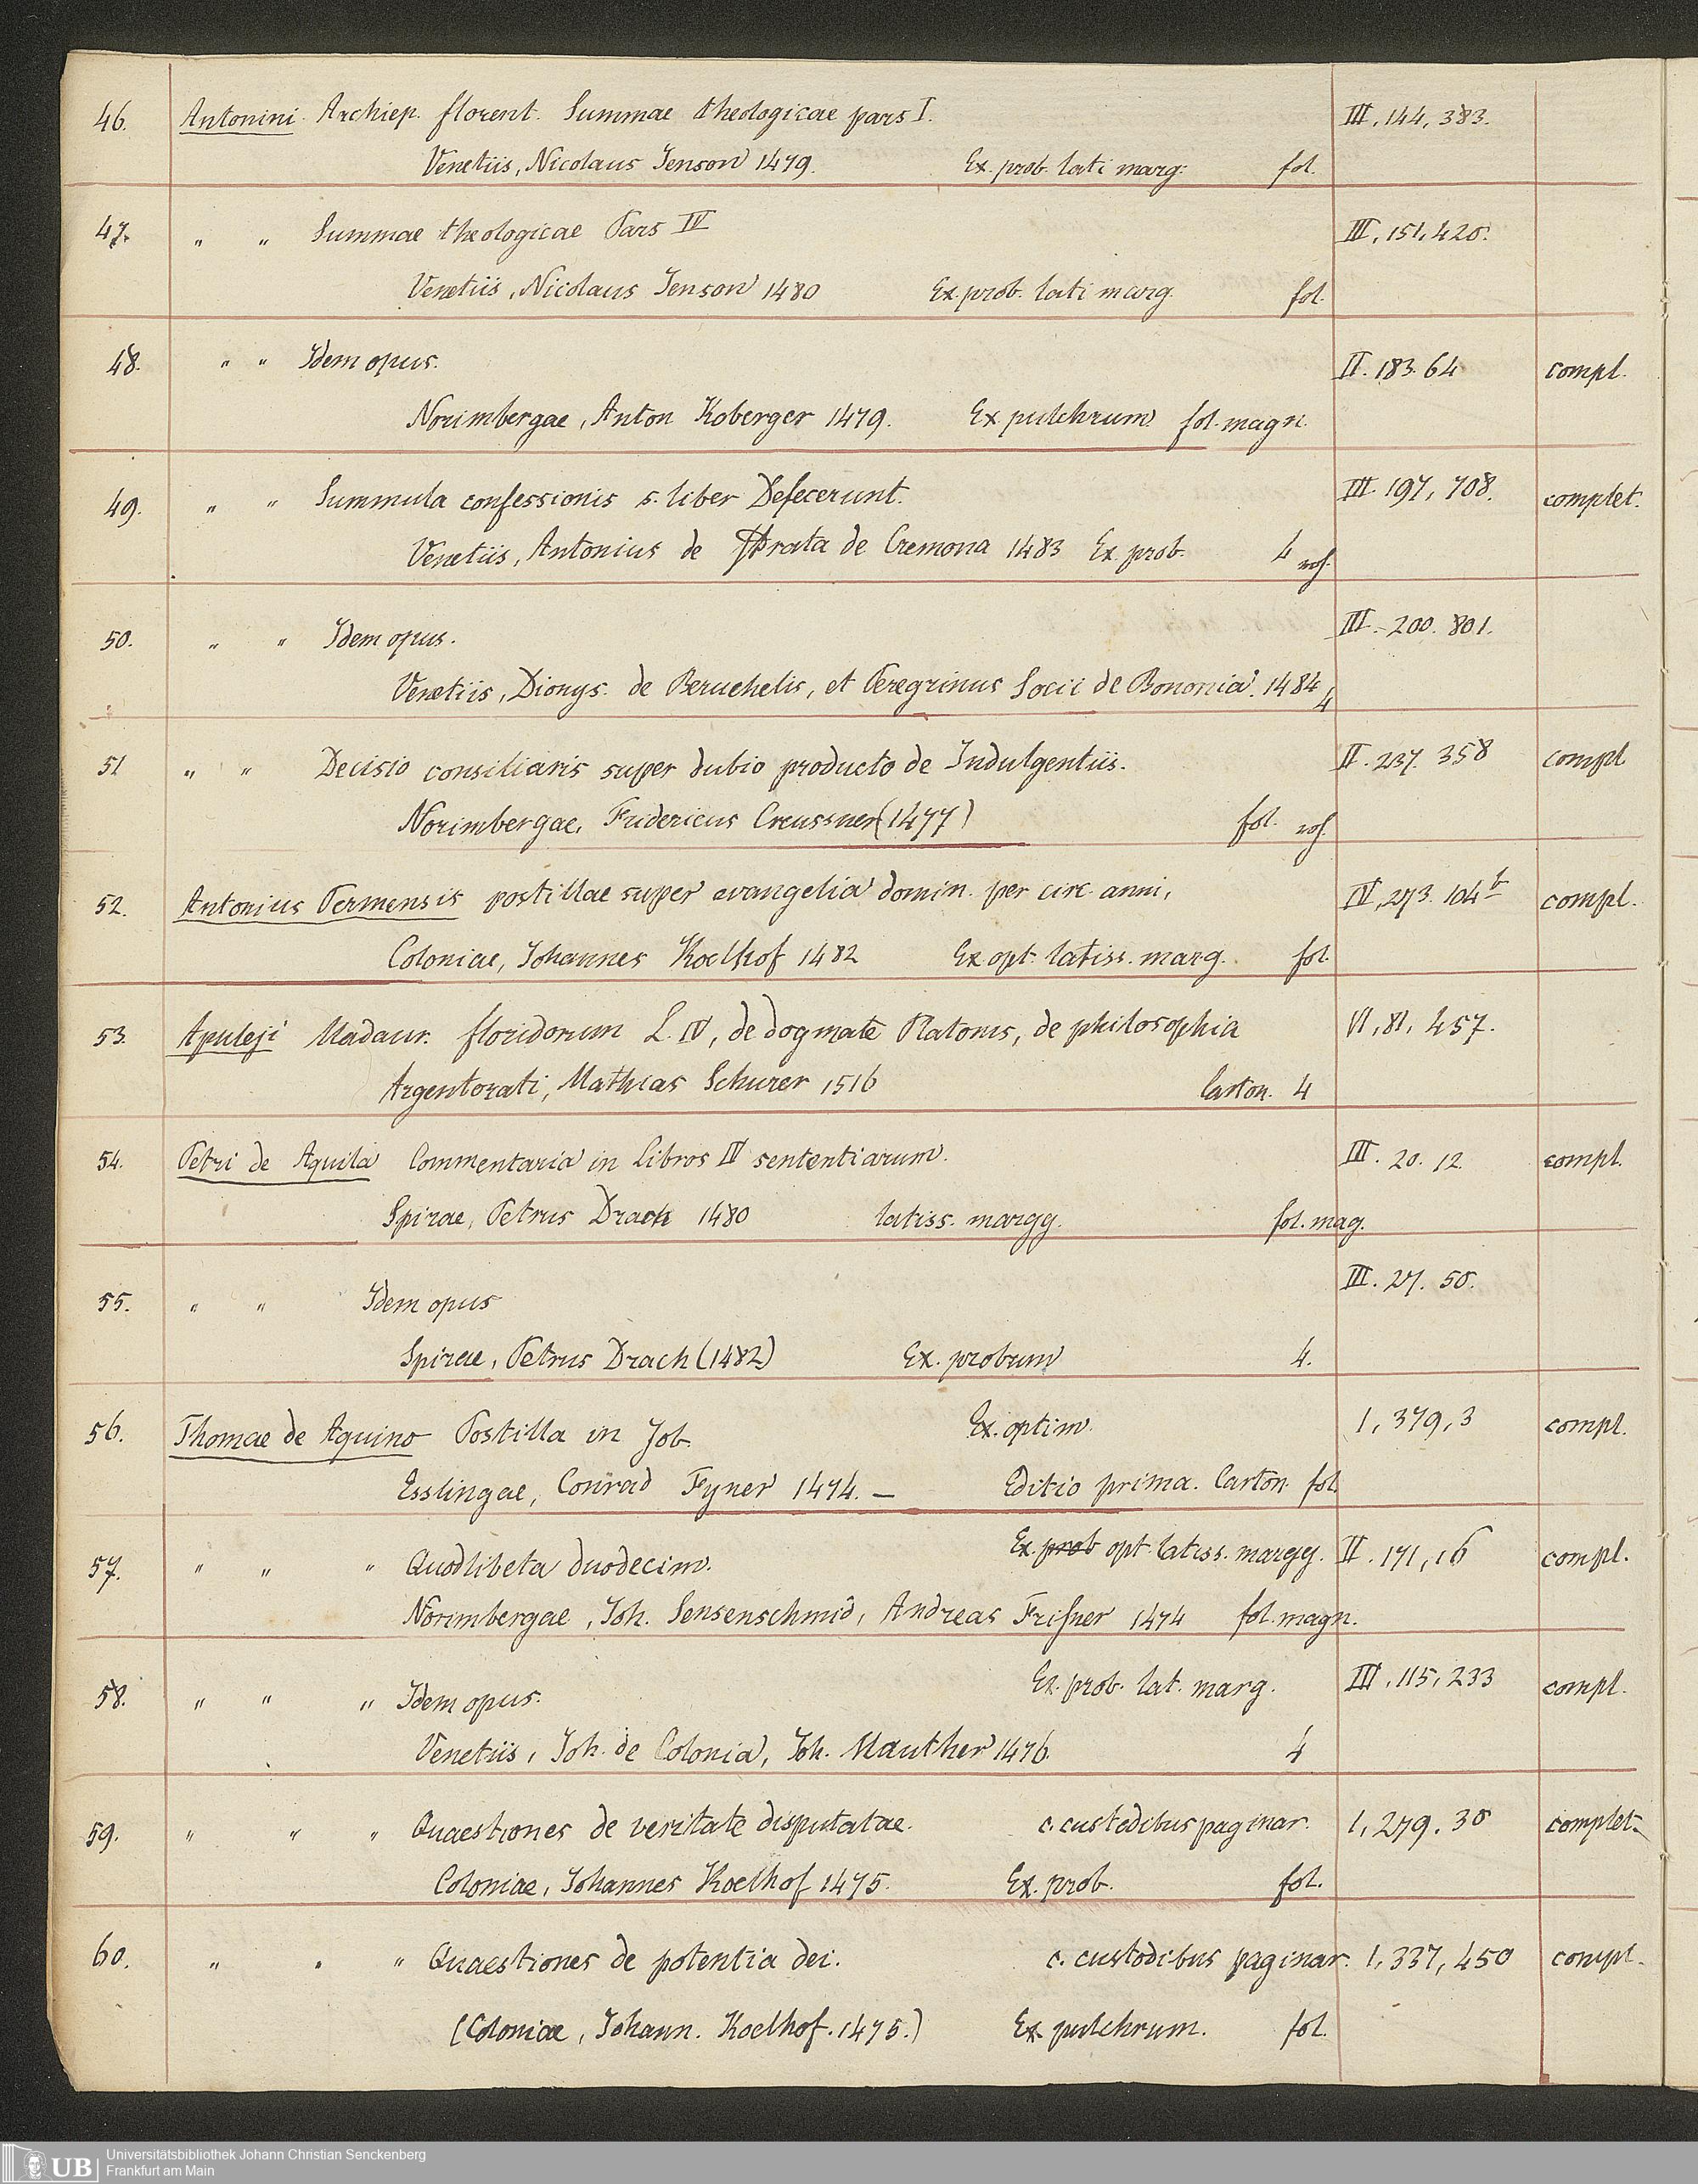 46. Antonini Archiep. florent. Summae theologicae pars I. III, 144, 383.
Venetiis, Nicolaus Jenson 1479. Ex. prob. lati marg: fol.
47. " " Summae theologicae Pars IV III, 151, 420.
Venetiis, Nicolaus Jenson 1480 Ex. prob. lati marg. fol.
48. " " Idem opus. II. 183. 64 compl.
Norimbergae, Anton Koberger 1479. Ex pulchrum fol. magn.
49. " " Summula confessionis s. liber Defecerunt. III. 197, 708. complet.
Venetiis, Antonius de Strata de Cremona 1483 Ex. prob. 4
50. " " Idem opus. III. 200. 801.
Venetiis, Dionys. de Beruchelis, et Peregrinus Socii de Bononia. 1484 4
51 " " Decisio consiliaris super dubio producto de Indulgentiis. II. 237. 358 compl
Norimbergae, Fridericus Creussner (1477) fol.
52. Antonius Parmensis postillae super evangelia domin. per circ anni, IV, 273. 104b compl.
Coloniae, Johannes Koelhof 1482 Ex opt. latiss. marg. fol.
53. Apuleji Madaur. floridorum L. IV, de dogmate Platonis, de philosophia VI, 81, 457.
Argentorati, Mathias Schurer 1516 Carton. 4
54. Petri de Aquila Commentaria in libros IV sententiarum. III. 20. 12. compl.
Spirae, Petrus Drach 1480 latiss. margg. fol. mag.
55. " " Idem opus III. 27. 50.
Spirae, Petrus Drach (1482) Ex. probum 4.
56. Thomae de Aquino Postilla in Job. Ex. optim. 1, 379, 3 compl.
Esslingae, Conrad Fyner 1474. — Editio prima. Carton. fol
57. " " " Quodlibeta duodecim. Ex. prob opt. latiss. margg. II. 171, 16 compl.
Norimbergae, Joh. Sensenschmid, Andreas Frisner 1474 fol. magn.
58. " " " Idem opus. Ex. prob. lat. marg. III, 115, 233 compl.
Venetiis, Joh. de Colonia, Joh. Manther 1476. 4
59. " " " Quaestiones de veritate disputatae. c. custodibus paginar. 1, 279. 30 complet.
Coloniae, Johannes Koelhof 1475. Ex. prob. fol.
60. " " " Quaestiones de potentia dei. c. custodibus paginar. 1, 337, 450 compl.
(Coloniae, Johann. Koelhof. 1475.) Ex pulchrum. fol.
UB Universitätsbibliothek Johann Christian Senckenberg
Frankfurt am Main